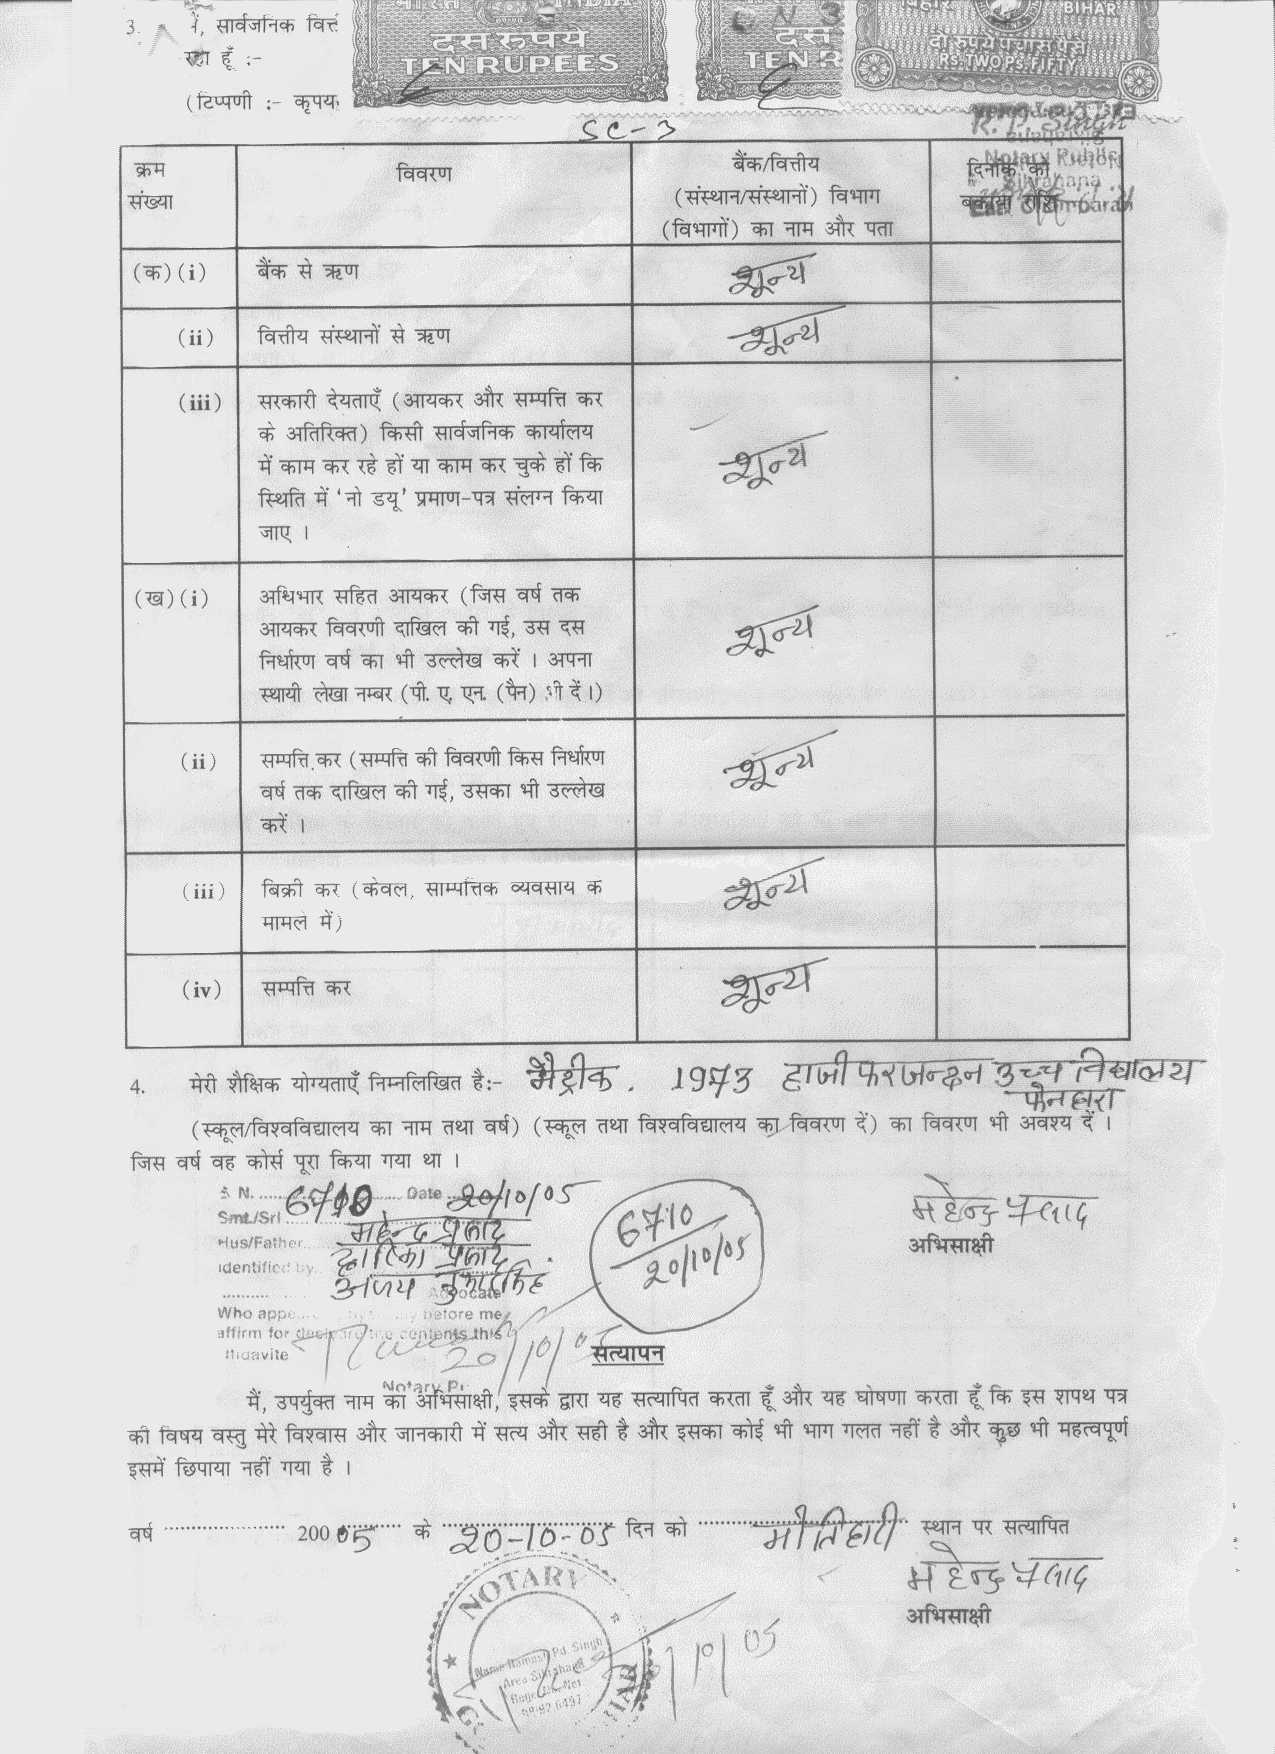 INDIA
BIHAR
दस रुपये
TEN RUPEES
दो रुपये पचास पैसे
RS.TWO Ps.FIFTY
3. सार्वजनिक
रहा हूँ :-
(टिप्पणी :-
SC-3
Notary Public
Sikrahana
क्रम संख्या
विवरण
बैंक/वित्तीय
(संस्थान/संस्थानों) विभाग
(विभागों) का नाम और पता
दिनांक को
बकाया राशि
(क)(i) बैंक से ऋण शून्य
(ii) वित्तीय संस्थानों से ऋण शून्य
(iii) सरकारी देयताएँ (आयकर और सम्पत्ति कर
के अतिरिक्त) किसी सार्वजनिक कार्यालय
में काम कर रहे हों या काम कर चुके हों कि
स्थिति में 'नो डयू' प्रमाण-पत्र संलग्न किया
जाए ।
शून्य
(ख)(i) अधिभार सहित आयकर (जिस वर्ष तक
आयकर विवरणी दाखिल की गई, उस दस
निर्धारण वर्ष का भी उल्लेख करें । अपना
स्थायी लेखा नम्बर (पी. ए. एन. (पैन) भी दें।)
शून्य
(ii) सम्पत्ति कर (सम्पत्ति की विवरणी किस निर्धारण
वर्ष तक दाखिल की गई, उसका भी उल्लेख
करें ।
शून्य
(iii) बिक्री कर (केवल, साम्पत्तिक व्यवसाय के
मामले में)
शून्य
(iv) सम्पत्ति कर शून्य
4. मेरी शैक्षिक योग्यताएँ निम्नलिखित है:- मैट्रीक . 1973 हाजी फरजन्दन उच्च विद्यालय
फेनहारा
(स्कूल/विश्वविद्यालय का नाम तथा वर्ष) (स्कूल तथा विश्वविद्यालय का विवरण दें) का विवरण भी अवश्य दें ।
जिस वर्ष वह कोर्स पूरा किया गया था ।
S N. 6710 Date 20/10/05
Smt./Sri महेन्द्र प्रसाद
Hus/Father द्वारिका प्रसाद
Identified by अजय कुमार सिंह
Advocate
Who before me
affirm for declare the contents this
6710
20/10/05
महेन्द्र प्रसाद
अभिसाक्षी
20/10/05
Notary
सत्यापन
मैं, उपर्युक्त नाम का अभिसाक्षी, इसके द्वारा यह सत्यापित करता हूँ और यह घोषणा करता हूँ कि इस शपथ पत्र
की विषय वस्तु मेरे विश्वास और जानकारी में सत्य और सही है और इसका कोई भी भाग गलत नहीं है और कुछ भी महत्वपूर्ण
इसमें छिपाया नहीं गया है ।
वर्ष 200 05 के 20-10-05 दिन को मोतिहारी स्थान पर सत्यापित
महेन्द्र प्रसाद
अभिसाक्षी
NOTARY
Pd. Singh